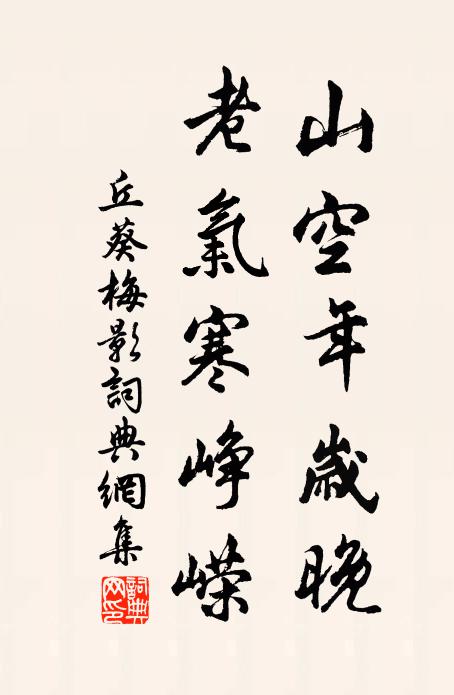 山空年歲晚
老氣寒崢嶸
丘葵梅影詞典網集
詞典网印